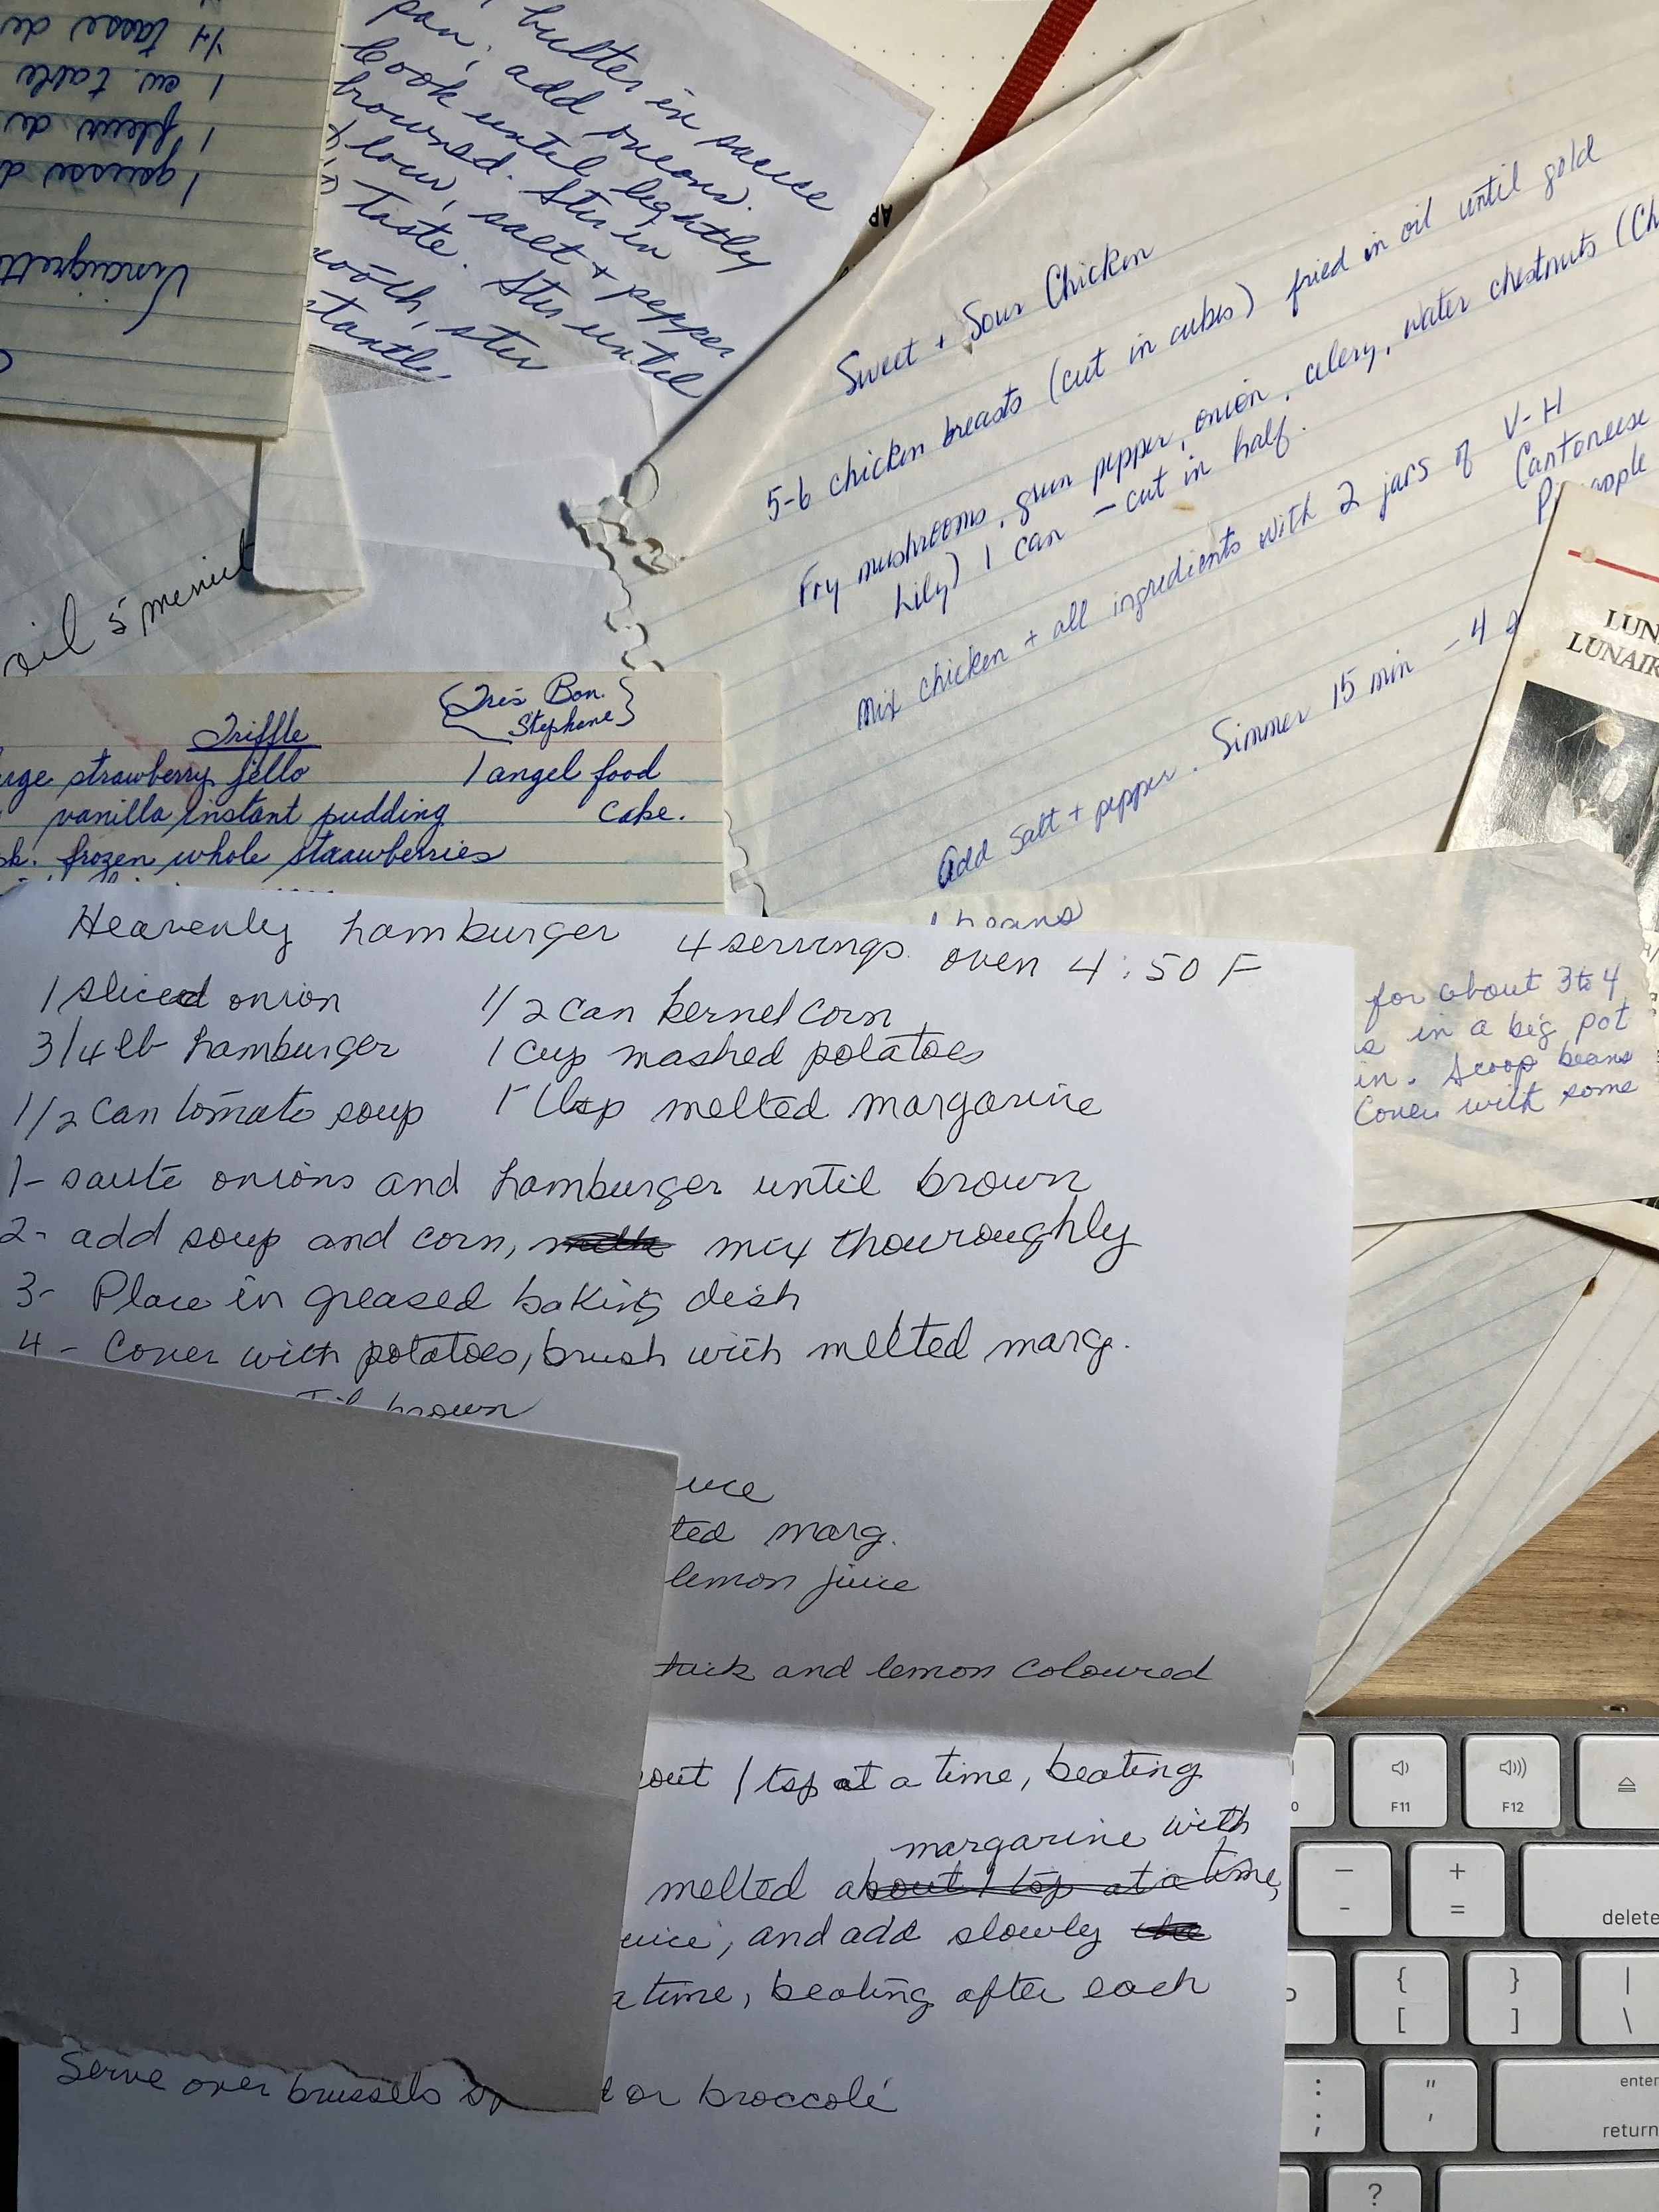 Vinaigrett
1 gousse d
1 fleur de
1 cu. table
1/4 tasse de
butter in sauce
pan, add onions.
Cook until lightly
browned. Stir in
low, salt + pepper
taste. Stir until
stantle.
AR
Sweet + Sour Chicken
5-6 chicken breasts (cut in cubes) fried in oil until gold
Fry mushrooms, green pepper, onion, celery, water chestnuts (Ch
Lily) 1 can - cut in half.
Mix chicken + all ingredients with 2 jars of V-H
Cantoneese
P apple
Add Salt + pepper. Simmer 15 min - 4 s
LUN
LUNAIR
oil 5 menut
Triffle
{Très Bon.
Stephane}
rge strawberry jello 1 angel food
vanilla instant pudding cake.
pk. frozen whole straawberries
beans
for about 3 to 4
s in a big pot
in. Scoop beans
Cover with some
Heavenly hamburger 4 servings. oven 4:50 F
1 sliced onion 1/2 can kernel corn
3/4 lb hamburger 1 cup mashed potatoes
1/2 can tomato soup 1 tbsp melted margarine
1- sauté onions and hamburger until brown
2- add soup and corn, mix thouroughly
3- Place in greased baking dish
4- Cover with potatoes, brush with melted marg.
Til brown
uce
ted marg.
lemon juice
thick and lemon coloured
out 1 tsp at a time, beating
margarine with
melted about 1 tsp at a time,
uice, and add slowly
a time, beating after each
Serve over brussels sp t or broccoli
F11
F12
-
-
+
=
delete
{
[
}
]
|
\
:
;
"
'
enter
return
?